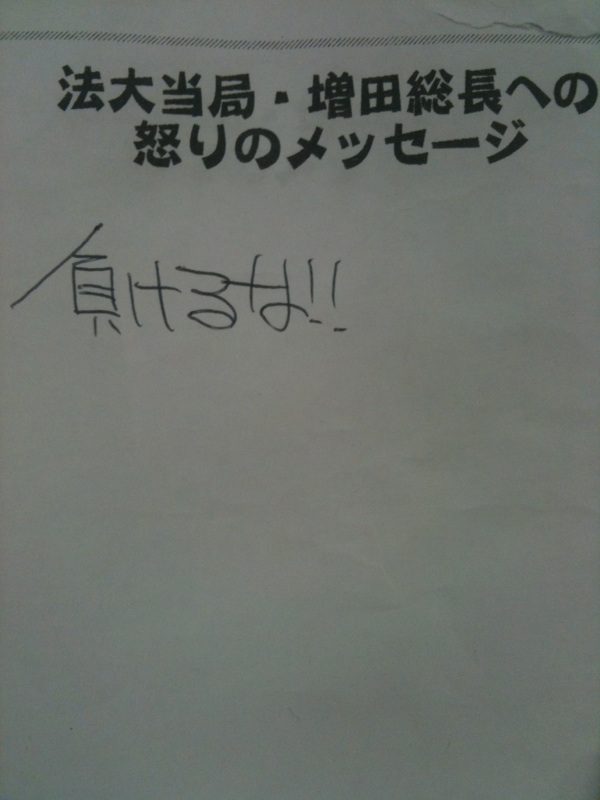 法大当局・増田総長への
怒りのメッセージ
負けるな!!